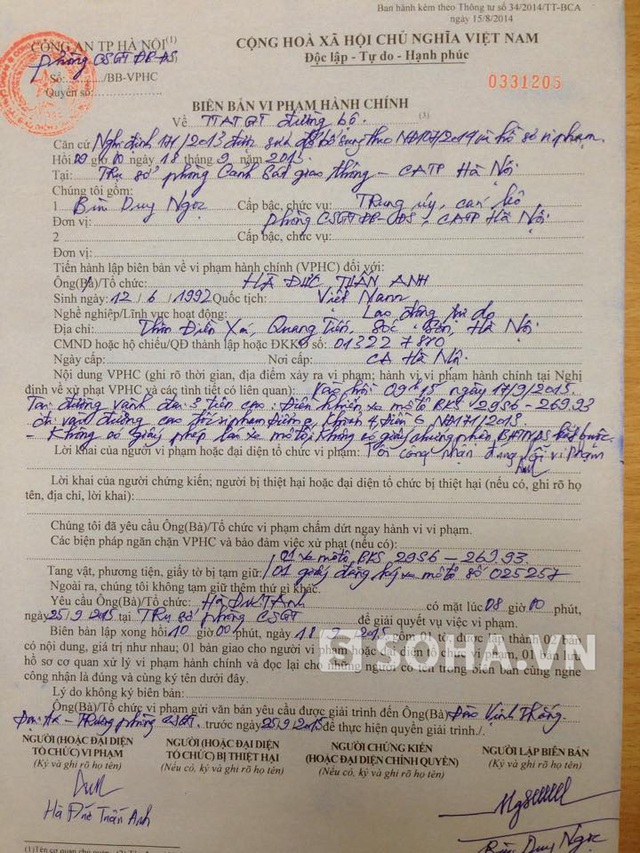 Ban hành kèm theo Thông tư số 34/2014/TT-BCA
ngày 15/8/2014
CÔNG AN TP HÀ NỘI(1)
Phòng CSGT ĐB-ĐS
CỘNG HOÀ XÃ HỘI CHỦ NGHĨA VIỆT NAM
Độc lập - Tự do - Hạnh phúc
Số:/BB-VPHC
Quyển số:
0331205
BIÊN BẢN VI PHẠM HÀNH CHÍNH
Về TTATGT đường bộ (3)
Căn cứ Nghị định 171/2013 được bổ sung theo NĐ107/2014 và hồ sơ vi phạm.
Hồi 09 giờ 00 ngày 18 tháng 9 năm 2015
Tại: Trụ sở phòng Cảnh sát giao thông - CATP Hà Nội
Chúng tôi gồm:
1 Bùi Duy Ngọc Cấp bậc, chức vụ: Trung úy, cán bộ
Đơn vị: Phòng CSGT ĐB-ĐS, CATP Hà Nội
2 Cấp bậc, chức vụ:
Đơn vị:
Tiến hành lập biên bản về vi phạm hành chính (VPHC) đối với:
Ông(Bà)/Tổ chức: HÀ ĐỨC TUẤN ANH
Sinh ngày: 12/6/1992 Quốc tịch: Việt Nam
Nghề nghiệp/Lĩnh vực hoạt động: Lao động tự do
Địa chỉ: Thôn Điền Xá, Quang Tiến, Sóc Sơn, Hà Nội
CMND hoặc hộ chiếu/QĐ thành lập hoặc ĐKKD số 013227870
Ngày cấp: Nơi cấp: CA Hà Nội
Nội dung VPHC (ghi rõ thời gian, địa điểm xảy ra vi phạm; hành vi vi phạm hành chính tại Nghị
định về xử phạt VPHC và các tình tiết có liên quan): Vào hồi 09h15 ngày 17/9/2015.
Tại đường vành đai 3 trên cao: Điều khiển xe mô tô BKS 29S6 - 269.93
đi vào đường cao tốc vi phạm Điểm a, Khoản 4, Điều 6 NĐ171/2013.
- Không có giấy phép lái xe mô tô; không có giấy chứng nhận BHTNDS bắt buộc.
Lời khai của người vi phạm hoặc đại diện tổ chức vi phạm: Tôi công nhận đúng lỗi vi phạm
Lời khai của người chứng kiến; người bị thiệt hại hoặc đại diện tổ chức bị thiệt hại (nếu có, ghi rõ họ
tên, địa chỉ, lời khai):
Chúng tôi đã yêu cầu Ông(Bà)/Tổ chức vi phạm chấm dứt ngay hành vi vi phạm.
Các biện pháp ngăn chặn VPHC và bảo đảm việc xử phạt (nếu có):
01 xe mô tô, BKS 29S6 - 269.93
Tang vật, phương tiện, giấy tờ bị tạm giữ: 01 giấy đăng ký xe mô tô số 025257
Ngoài ra, chúng tôi không tạm giữ thêm thứ gì khác.
Yêu cầu Ông(Bà)/Tổ chức: Hà Đức T Anh có mặt lúc 08 giờ 00 phút,
ngày 25/9/2015 tại Trụ sở phòng CSGT để giải quyết vụ việc vi phạm.
Biên bản lập xong hồi 10 giờ 00 phút, ngày 18/9/2015 gồm 01 tờ được thành bản
có nội dung, giá trị như nhau; 01 bản giao cho người vi phạm hoặc đại diện tổ chức vi phạm, 01 bản lưu
hồ sơ cơ quan xử lý vi phạm hành chính và đọc lại cho những người có tên trong biên bản cùng nghe
công nhận là đúng và cùng ký tên dưới đây.
SOHA.VN
Lý do không ký biên bản:
Ông(Bà)/Tổ chức vi phạm gửi văn bản yêu cầu được giải trình đến Ông(Bà) Đào Vịnh Thắng.
Trưởng phòng CSGT. trước ngày 25/9/2015 để thực hiện quyền giải trình./.
NGƯỜI (HOẶC ĐẠI DIỆN
TỔ CHỨC) VI PHẠM
(Ký và ghi rõ họ tên)
Hà Đức Tuấn Anh
NGƯỜI (HOẶC ĐẠI DIỆN
TỔ CHỨC) BỊ THIỆT HẠI
(Nếu có, ký và ghi rõ họ tên)
NGƯỜI CHỨNG KIẾN
(HOẶC ĐẠI DIỆN CHÍNH QUYỀN)
(Nếu có, ký và ghi rõ họ tên)
NGƯỜI LẬP BIÊN BẢN
(Ký và ghi rõ họ tên)
Bùi Duy Ngọc